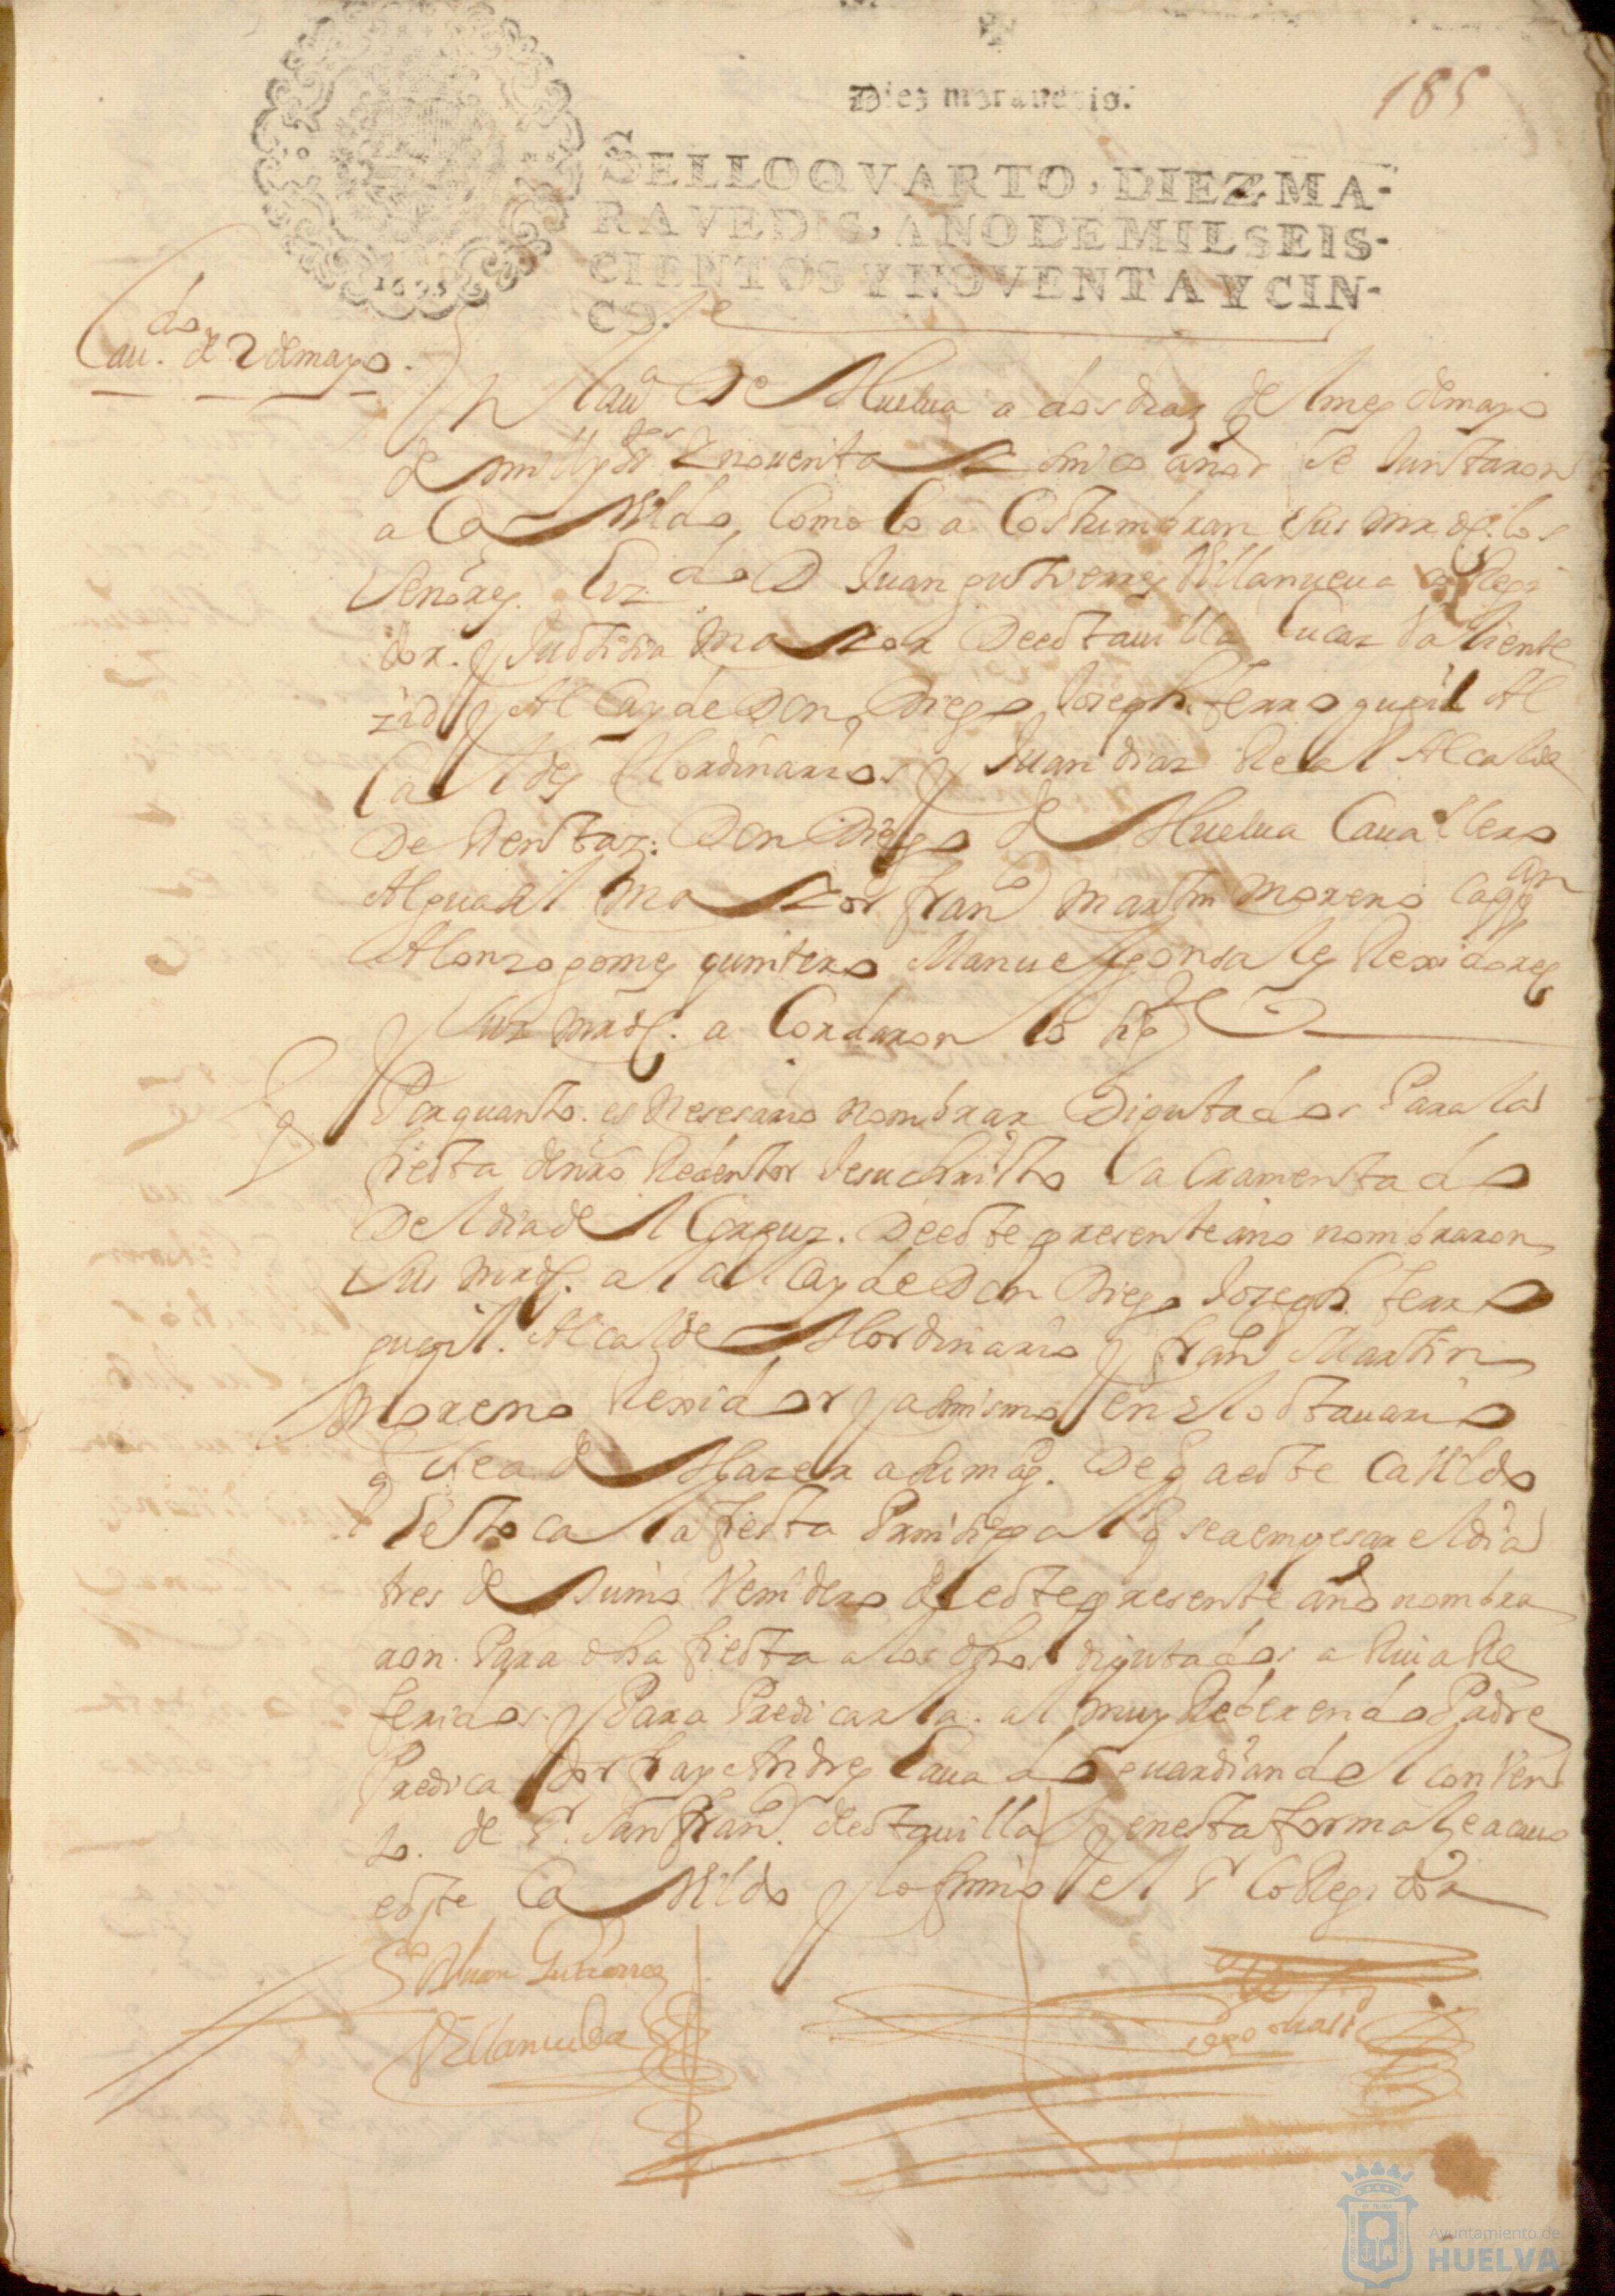 Diez marauedis.
185
SELLOQVARTO, DIEZMA-
RAVEDIS, AÑODEMILSEIS-
CIENTOS Y NOVENTA Y CIN-
CO.
1695
Cau.do de 2 de mayo.
En la uª De Huelua a dos dias del mes de mayo
de mill y ss.tos y nouenta y sinco años se Juntaron
a Cauildo, Como lo a Costumbran sus mrds. los
Senores. Liz.do D Juan gutierres Villanueua Corregi
dor. y Justisia Mayor De esta uilla Lucas Valiente
y Al Cayde Don Diego Joseph. ferro Al
Caldes Hordinarios y Juan dias Real Alcalde
De Rentas: Don Diego de Huelua Cauallero
Alguasil Mayor fran.co Martin Moreno
Alonso gomes quintero Manuel gonsales Rexidores
y sus mrds. a Cordaron lo sig.te
Porquanto. es Nesesario nombrar Diputados Para la
fiesta de nro Redentor Jesuchristo Sacramentado
Del dia del Corpuz. De este presente año nombraron
sus mrds. al al Cayde Don Diego Joseph ferro
Alcalde Hordinario y fran.co Martin
Moreno Rexidor y asimismo en el ostauario
q se a de Hazer De q a este Cauildo
le toca la fiesta Prinsipal q se a empesar el dia
tres de Junio Venidero de este presente año nombra
ron. Para dha fiesta a los dhos diputados a Riua Re
feridos. y Para Predicarla. al muy Reberendo Padre
Predicador fray Andres guardian del conVen
to. de S.r San fran.co desta uilla y en esta forma se acauo
este Cauildo y lo firmo el S.r Corregidor
L.do D Juan Gutierres
Villanueba
Ayuntamiento de
HUELVA